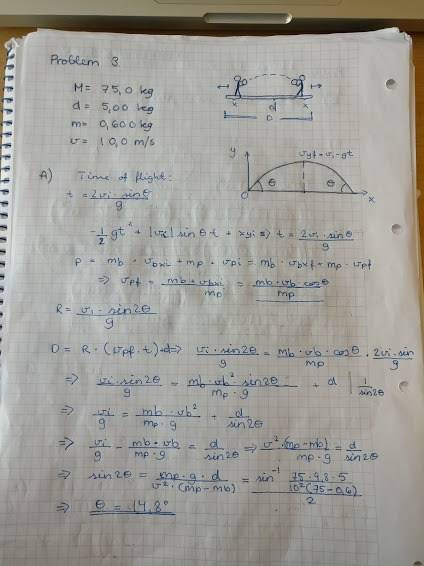 Problem 3.
M = 75,0 kg
d = 5,00 kg
m = 0,600 kg
v = 10,0 m/s
x d x
D
y
vyf = vi - gt
θ θ
0 x
A) Time of flight:
t = 2vi · sinθ / g
-1/2 gt² + |vx| sinθ t + xyi => t = 2vi · sinθ / g
P = mb · vbxi + mp · vpi = mb · vbxf + mp · vpf
=> vpf = mb · vbxi / mp = mb · vb cosθ / mp
R = vi · sin2θ / g
D = R · (vpf · t) + d => vi · sin2θ / g = mb · vb · cosθ / mp · 2vi · sin / g
=> vi · sin2θ / g = mb · vb² · sin2θ / mp · g + d | 1 / sin2θ
=> vi / g = mb · vb² / mp · g + d / sin2θ
=> vi / g - mb · vb / mp · g = d / sin2θ => v² · (mp - mb) / mp · g = d / sin2θ
=> sin2θ = mp · g · d / v² · (mp - mb) = sin⁻¹ 75 · 9,8 · 5 / 10² (75 - 0,6) / 2
=> θ = 14,8°